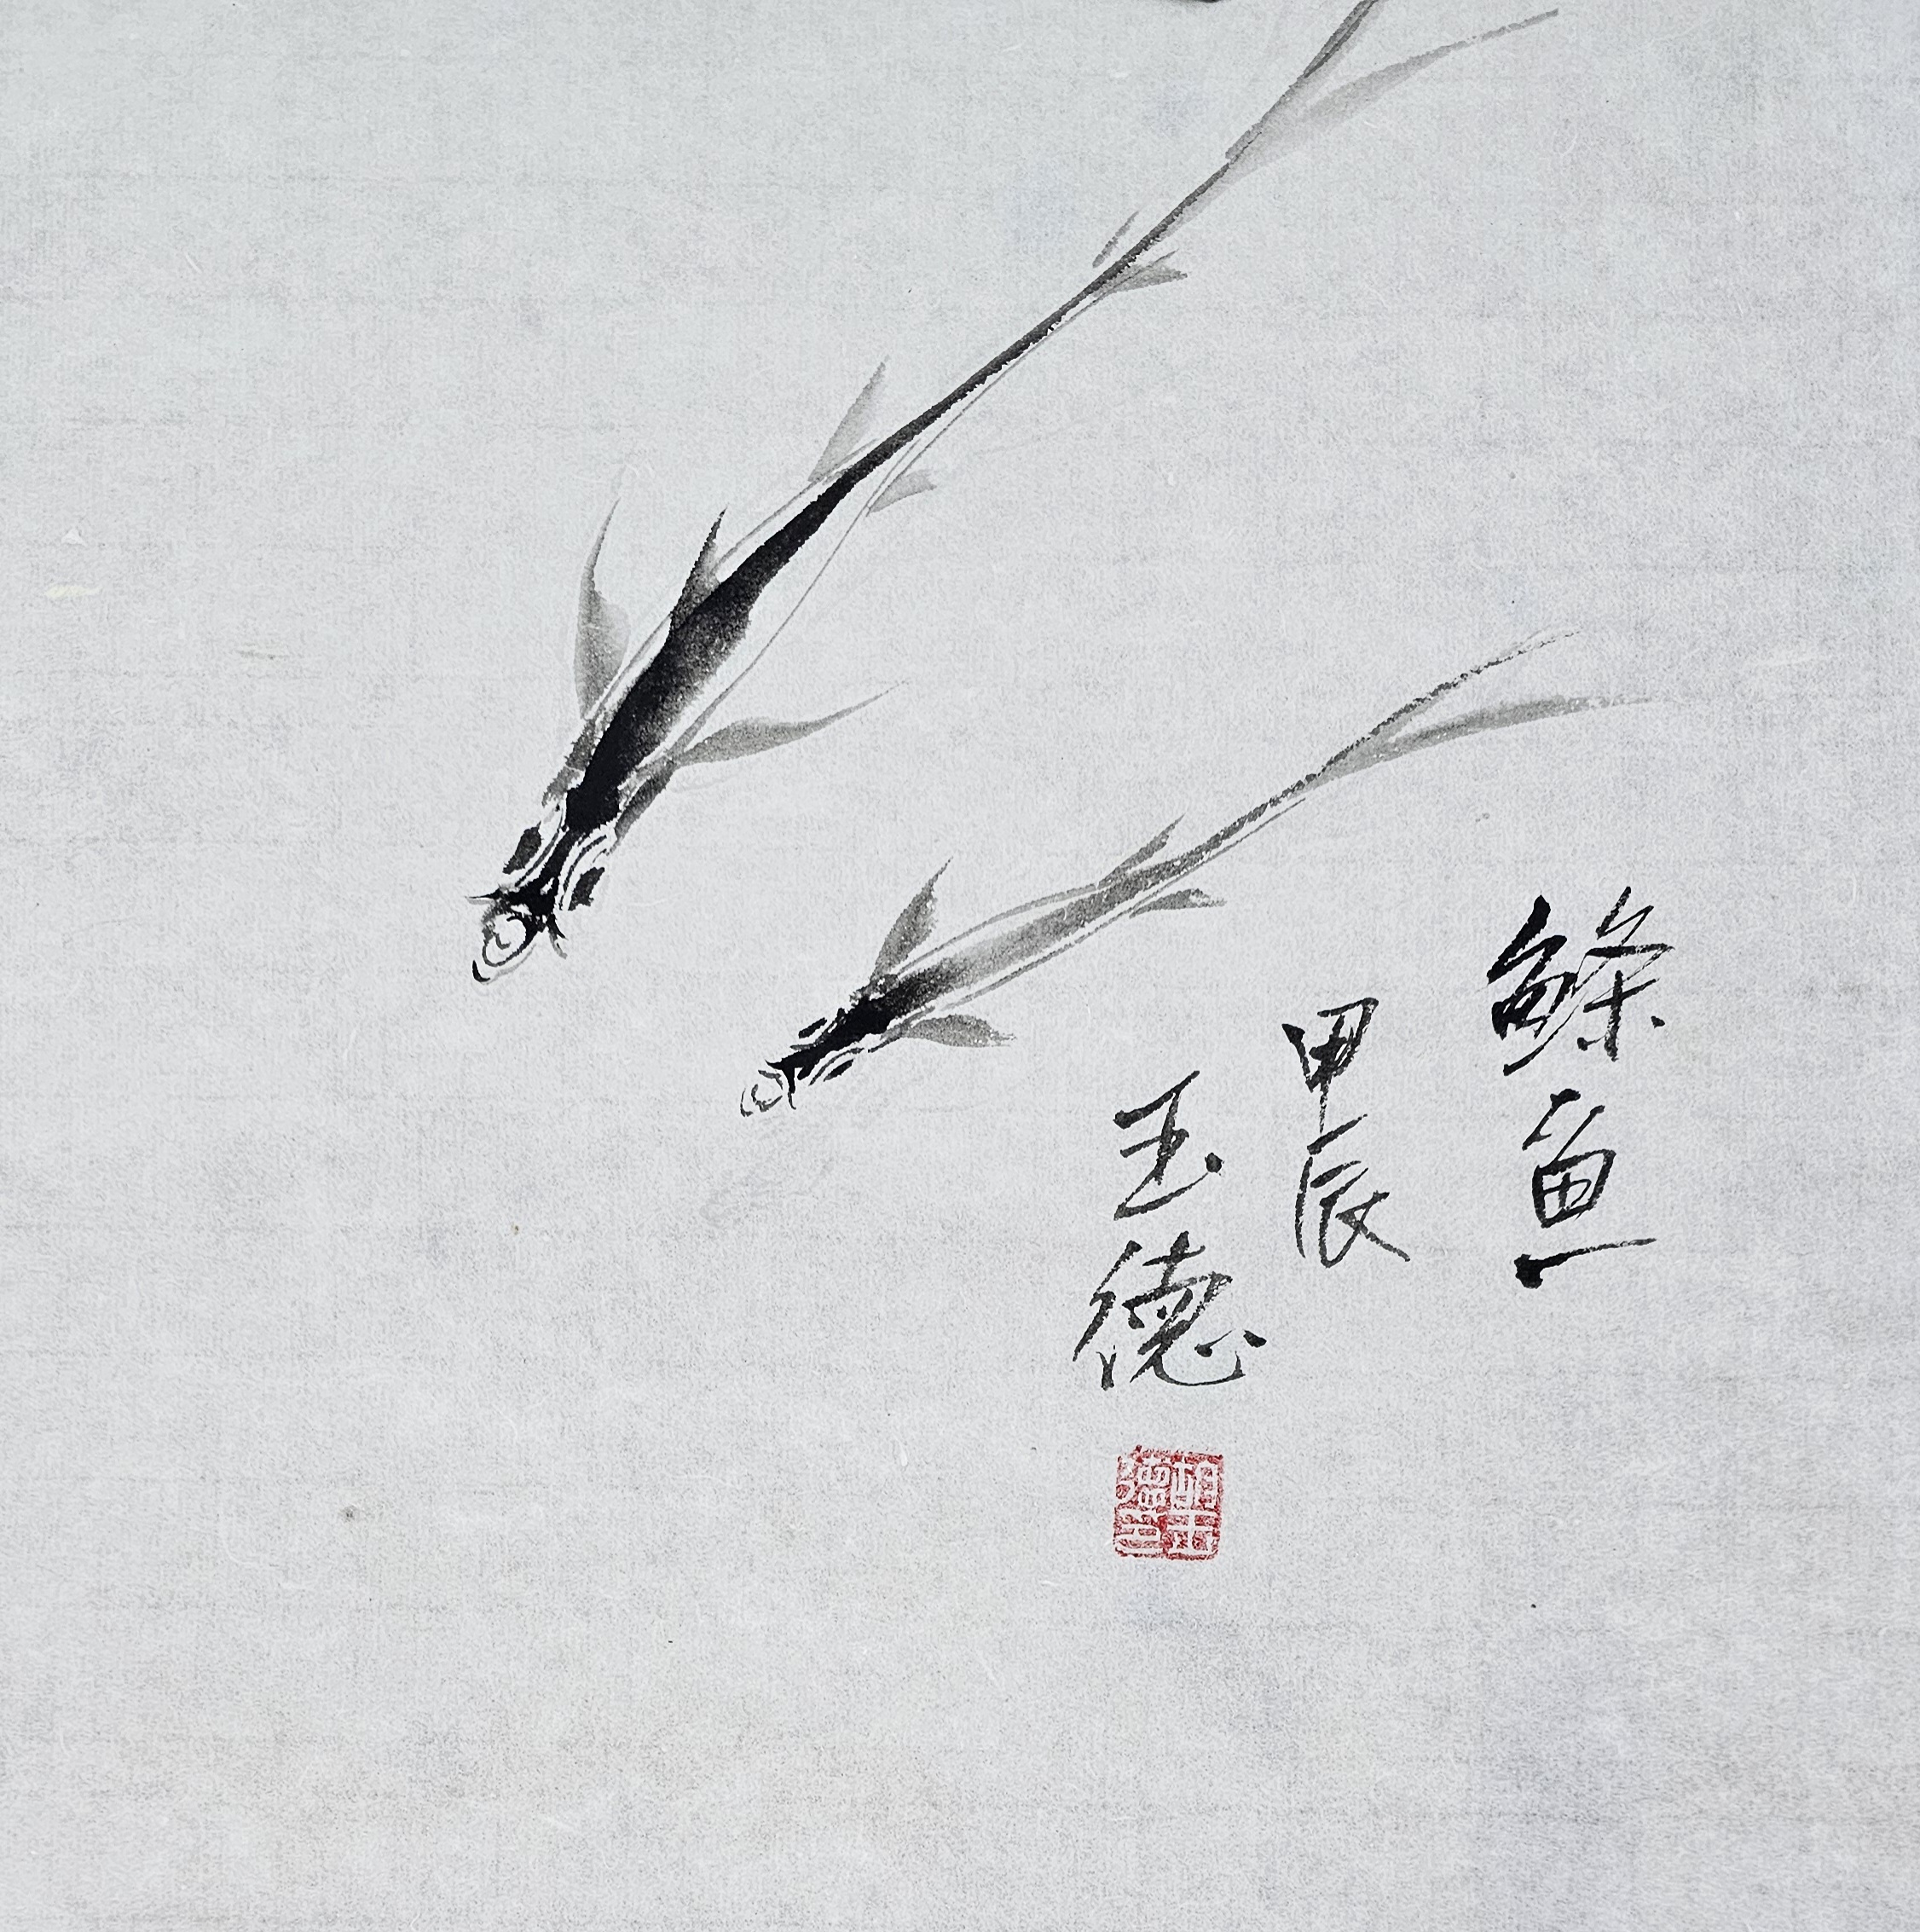 鲦魚
甲辰
玉德